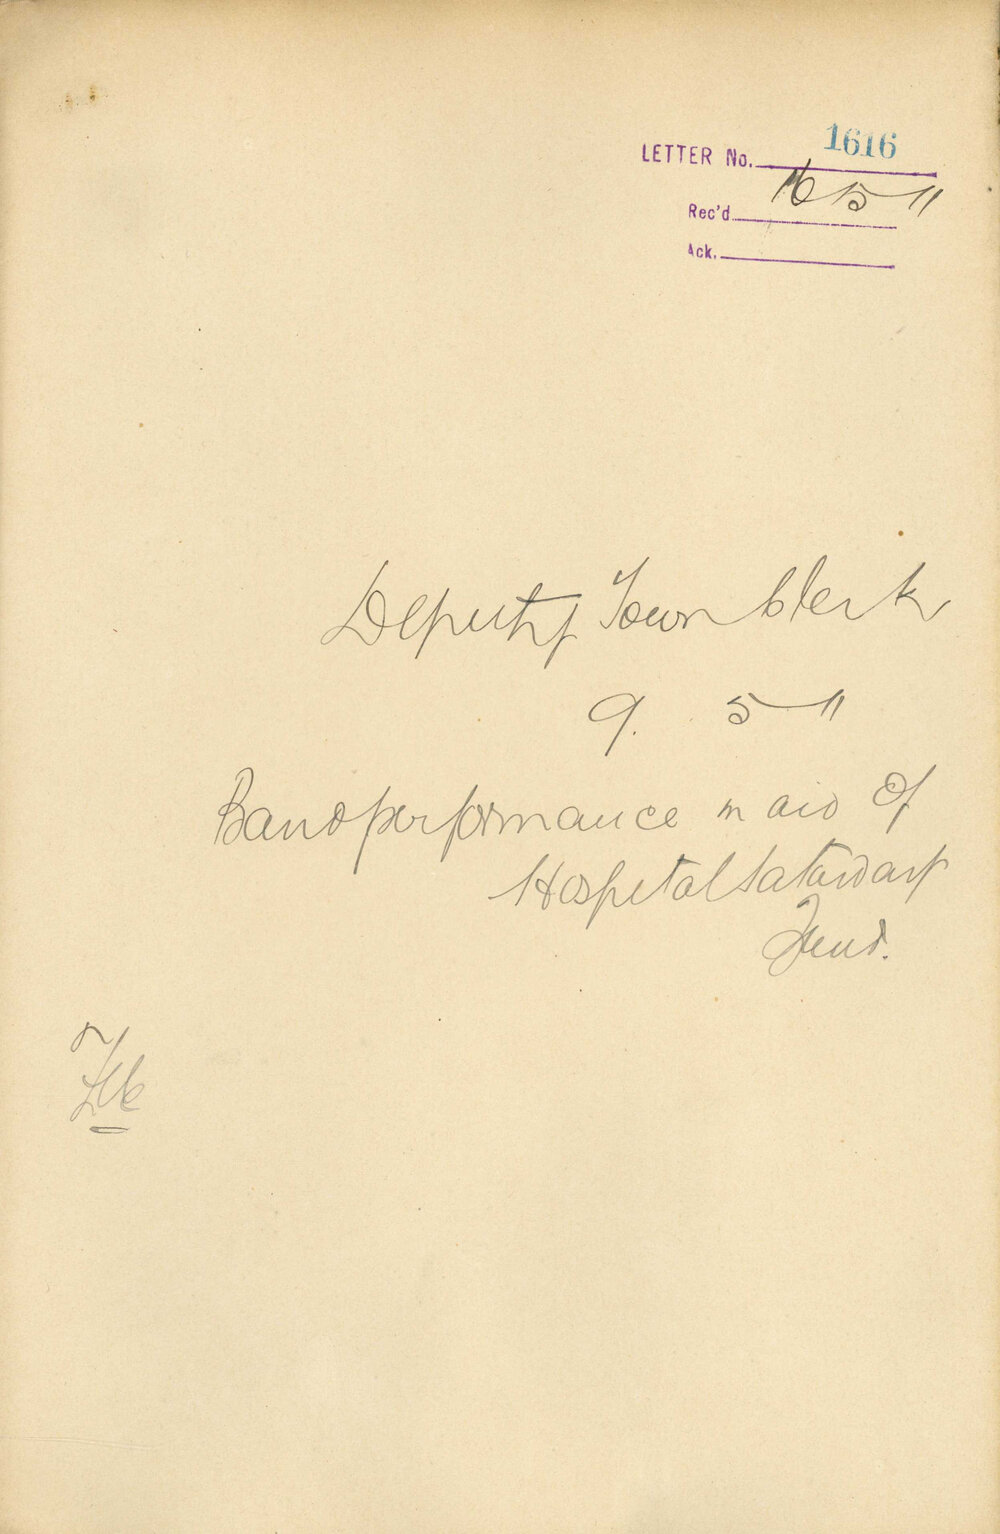 LETTER No. 1616
Rec'd 16 5 11
Ack.
Deputy Town Clerk
9. 5 11
Band performance in aid of
Hospital Saturday
Fund.
File